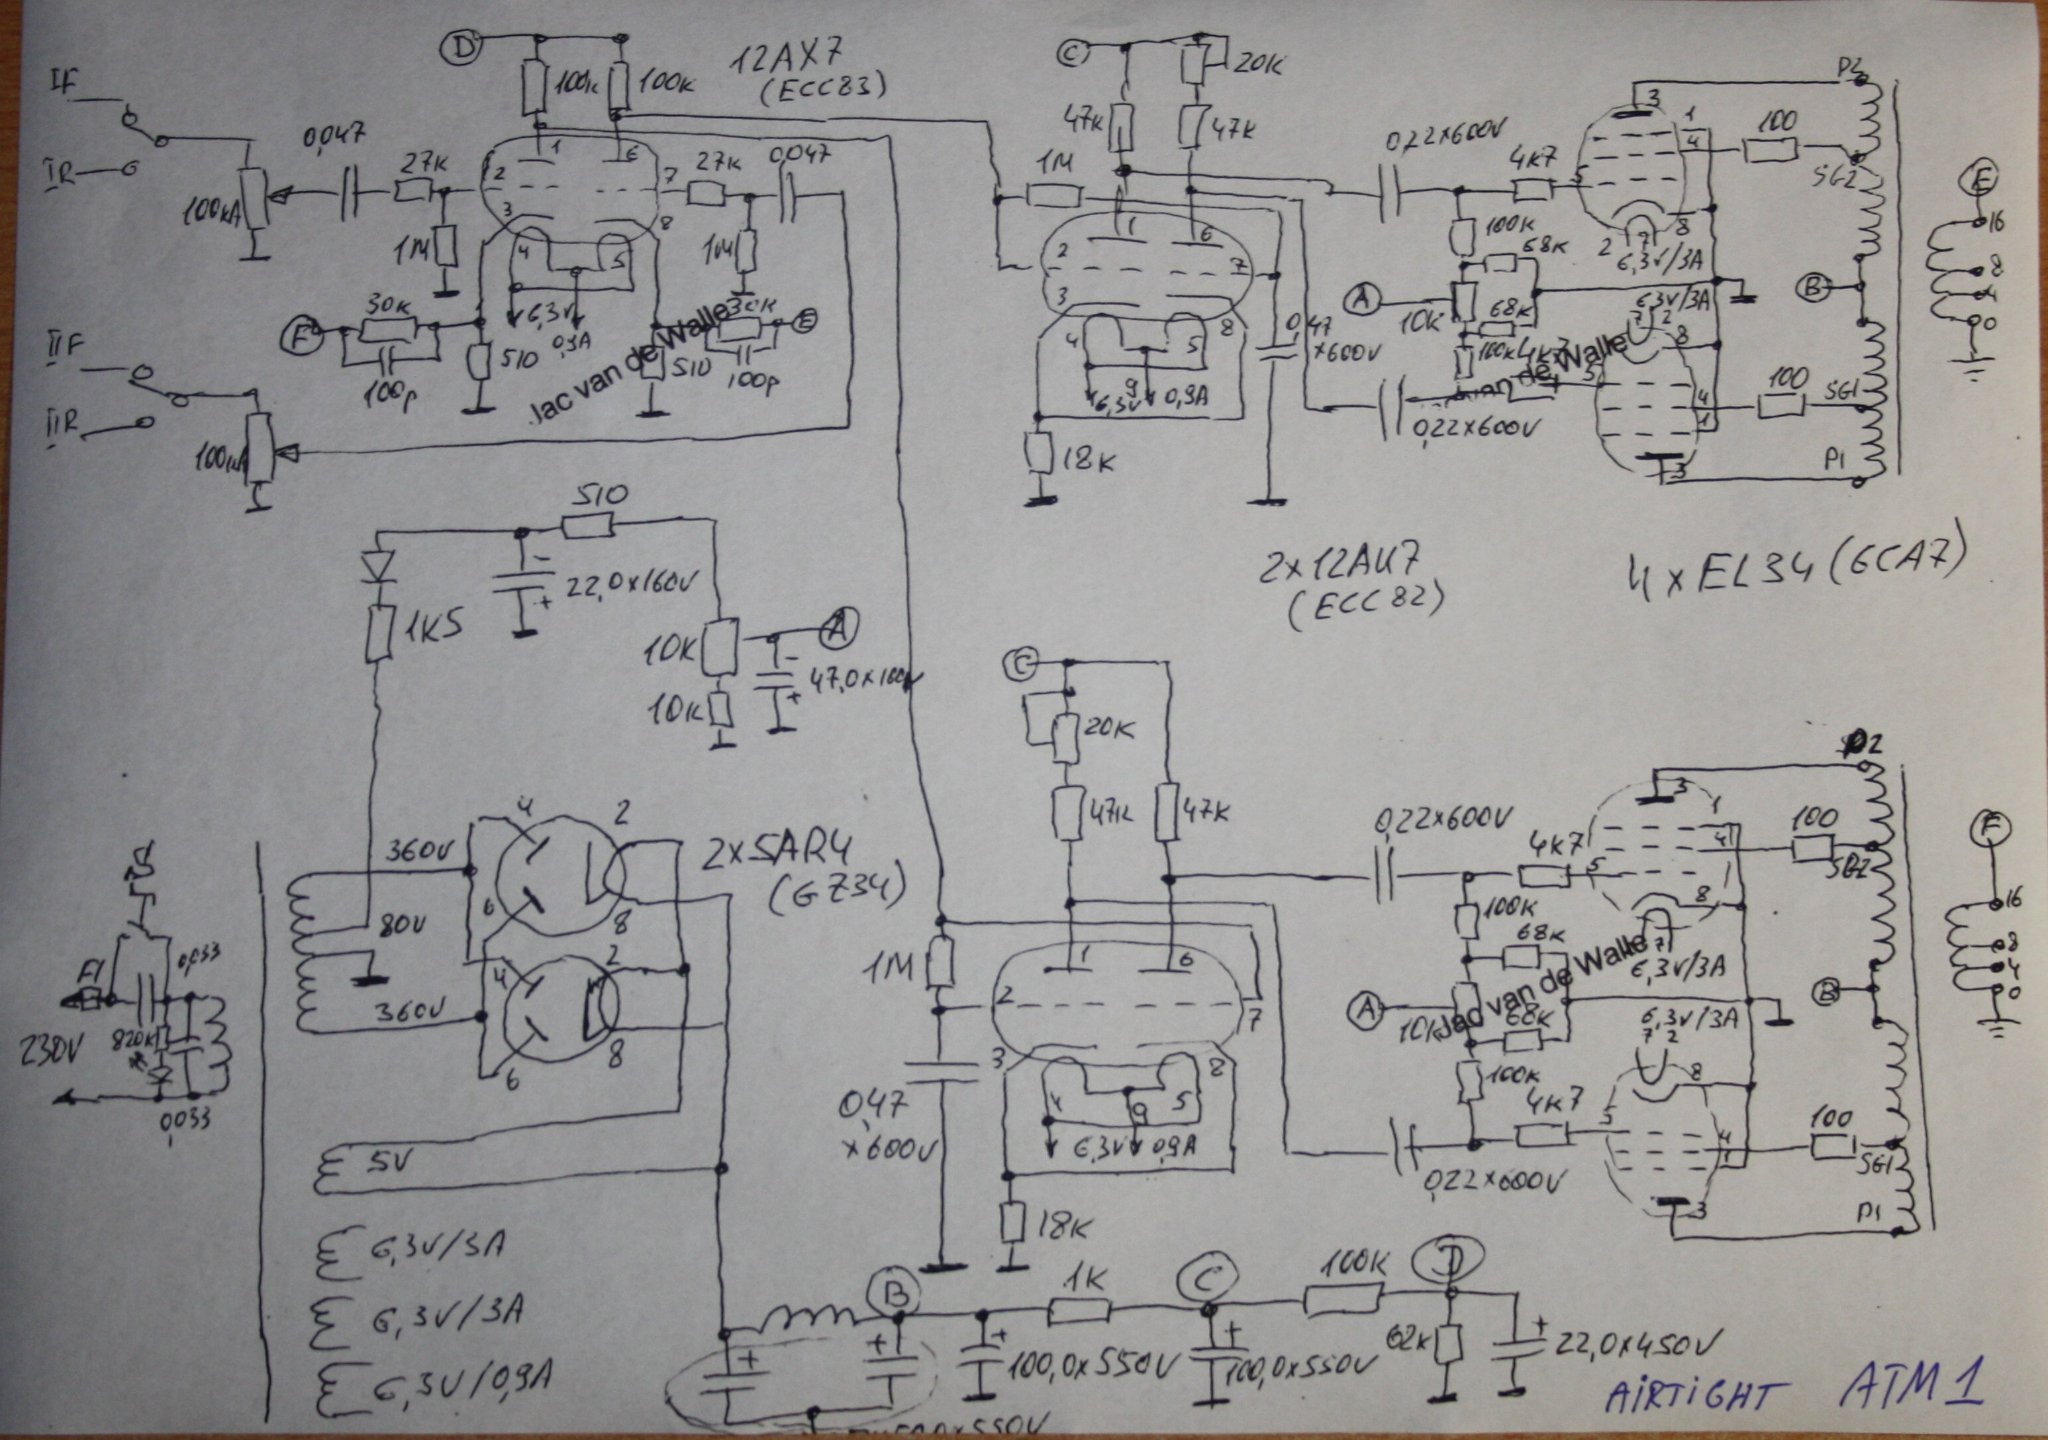 D
12AX7
(ECC83)
100k
100k
IF
IR
0,047
27k
100kA
1M
1
6
2
7
3
8
4
5
27k
0,047
1M
F
30k
100p
510
6,3v
0,9A
30k
E
510
100p
Jac van de Walle
IIF
IIR
100kA
C
20K
47k
47k
1M
1
6
2
7
3
8
4
5
9
6,3v
0,9A
18k
0,47
×600v
0,22×600v
4k7
100k
68k
A
10k
68k
100k
4k7
0,22×600v
Jac van de Walle
3
1
4
5
8
2
7
6,3v/3A
6,3v/3A
7
2
8
5
4
1
3
100
100
P2
SG2
B
SG1
P1
E
16
8
4
0
510
22,0×160v
1k5
10k
A
10k
2×12AU7
(ECC82)
4×EL34 (6CA7)
360v
80v
360v
4
2
6
8
4
2
6
8
2×5AR4
(GZ34)
F1
230v
0,033
820k
0,033
5v
6,3v/3A
6,3v/3A
6,3v/0,9A
C
20k
47k
47k
1M
1
6
2
7
3
8
4
9
5
6,3v
0,9A
0,47
×600v
18k
0,22×600v
4k7
100k
68k
A
10k
68k
100k
4k7
0,22×600v
Jac van de Walle
3
1
4
5
8
7
6,3v/3A
6,3v/3A
7
2
8
5
4
1
3
100
100
P2
SG2
B
SG1
P1
F
16
8
4
0
B
1k
C
100k
D
100,0×550v
100,0×550v
62k
22,0×450v
AIRTIGHT ATM1